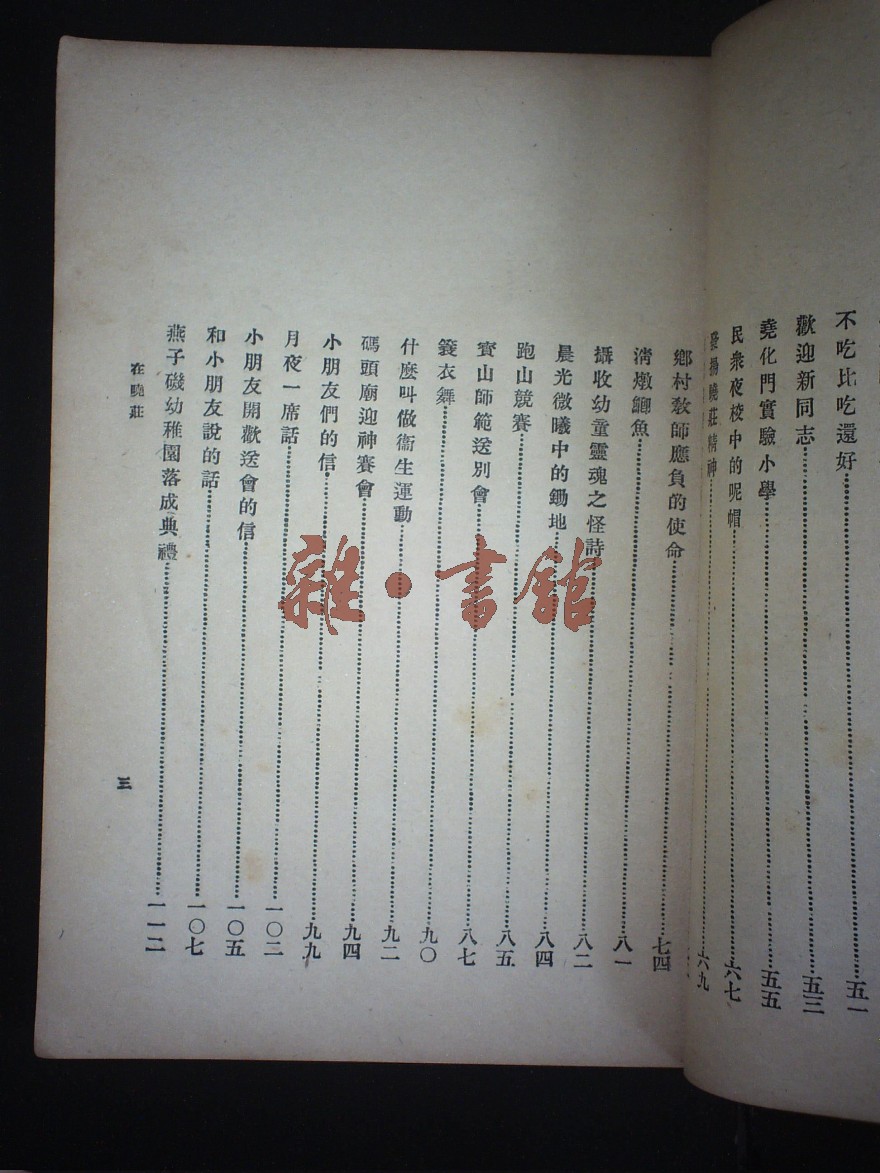 不吃比吃還好……五一
歡迎新同志……五三
堯化門實驗小學……五五
民衆夜校中的呢帽……六七
發揚曉莊精神……六九
鄉村教師應負的使命……七四
淸燉鯽魚……八一
攝收幼童靈魂之怪詩……八二
晨光微曦中的鋤地……八四
跑山競賽……八五
寶山師範送別會……八七
簑衣舞……九〇
什麼叫做衞生運動……九二
碼頭廟迎神賽會……九四
小朋友們的信……九九
月夜一席話……一〇二
小朋友開歡送會的信……一〇五
和小朋友說的話……一〇七
燕子磯幼稚園落成典禮……一一二
在曉莊
三
雜·書館